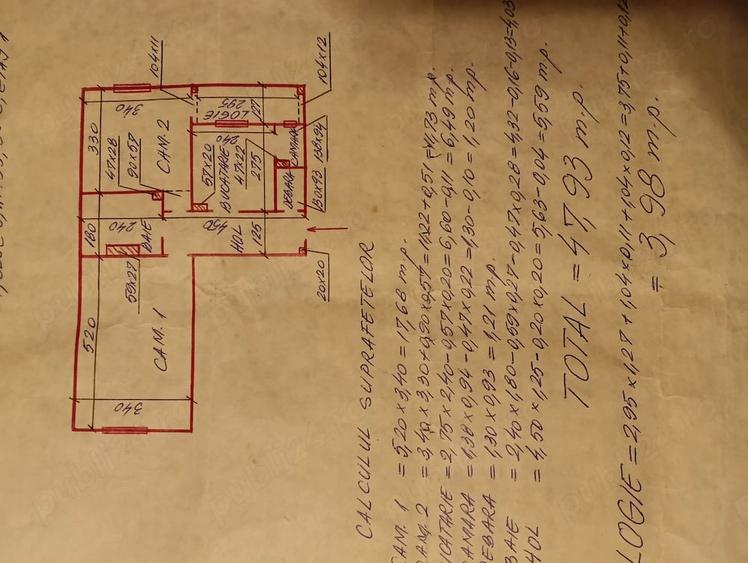 520
180
330
340
CAM. 1
59x27
240
BAIE
47x28
90x57
CAM. 2
340
104x11
450
HOL
125
57x20
BUCATARIE
240
47x22
275
LOGIE
295
127
DEBARA
CAMARA
20x20
130x93
138x94
104x12
CALCULUL SUPRAFETELOR
CAM. 1 = 5,20 x 3,40 = 17,68 m.p.
CAM. 2 = 3,40 x 3,30 + 0,90 x 0,57 = 11,22 + 0,51 = 11,73 m.p.
UCATARIE = 2,75 x 2,40 - 0,57 x 0,20 = 6,60 - 0,11 = 6,49 m.p.
AMARA = 1,38 x 0,94 - 0,47 x 0,22 = 1,30 - 0,10 = 1,20 m.p.
DEBARA = 1,30 x 0,93 = 1,21 m.p.
BAIE = 2,40 x 1,80 - 0,59 x 0,27 - 0,47 x 0,28 = 4,32 - 0,16 - 0,13 = 4,03
HOL = 4,50 x 1,25 - 0,20 x 0,20 = 5,63 - 0,04 = 5,59 m.p.
TOTAL = 47,93 m.p.
LOGIE = 2,95 x 1,27 + 1,04 x 0,11 + 1,04 x 0,12 = 3,75 + 0,11 + 0,12
= 3,98 m.p.